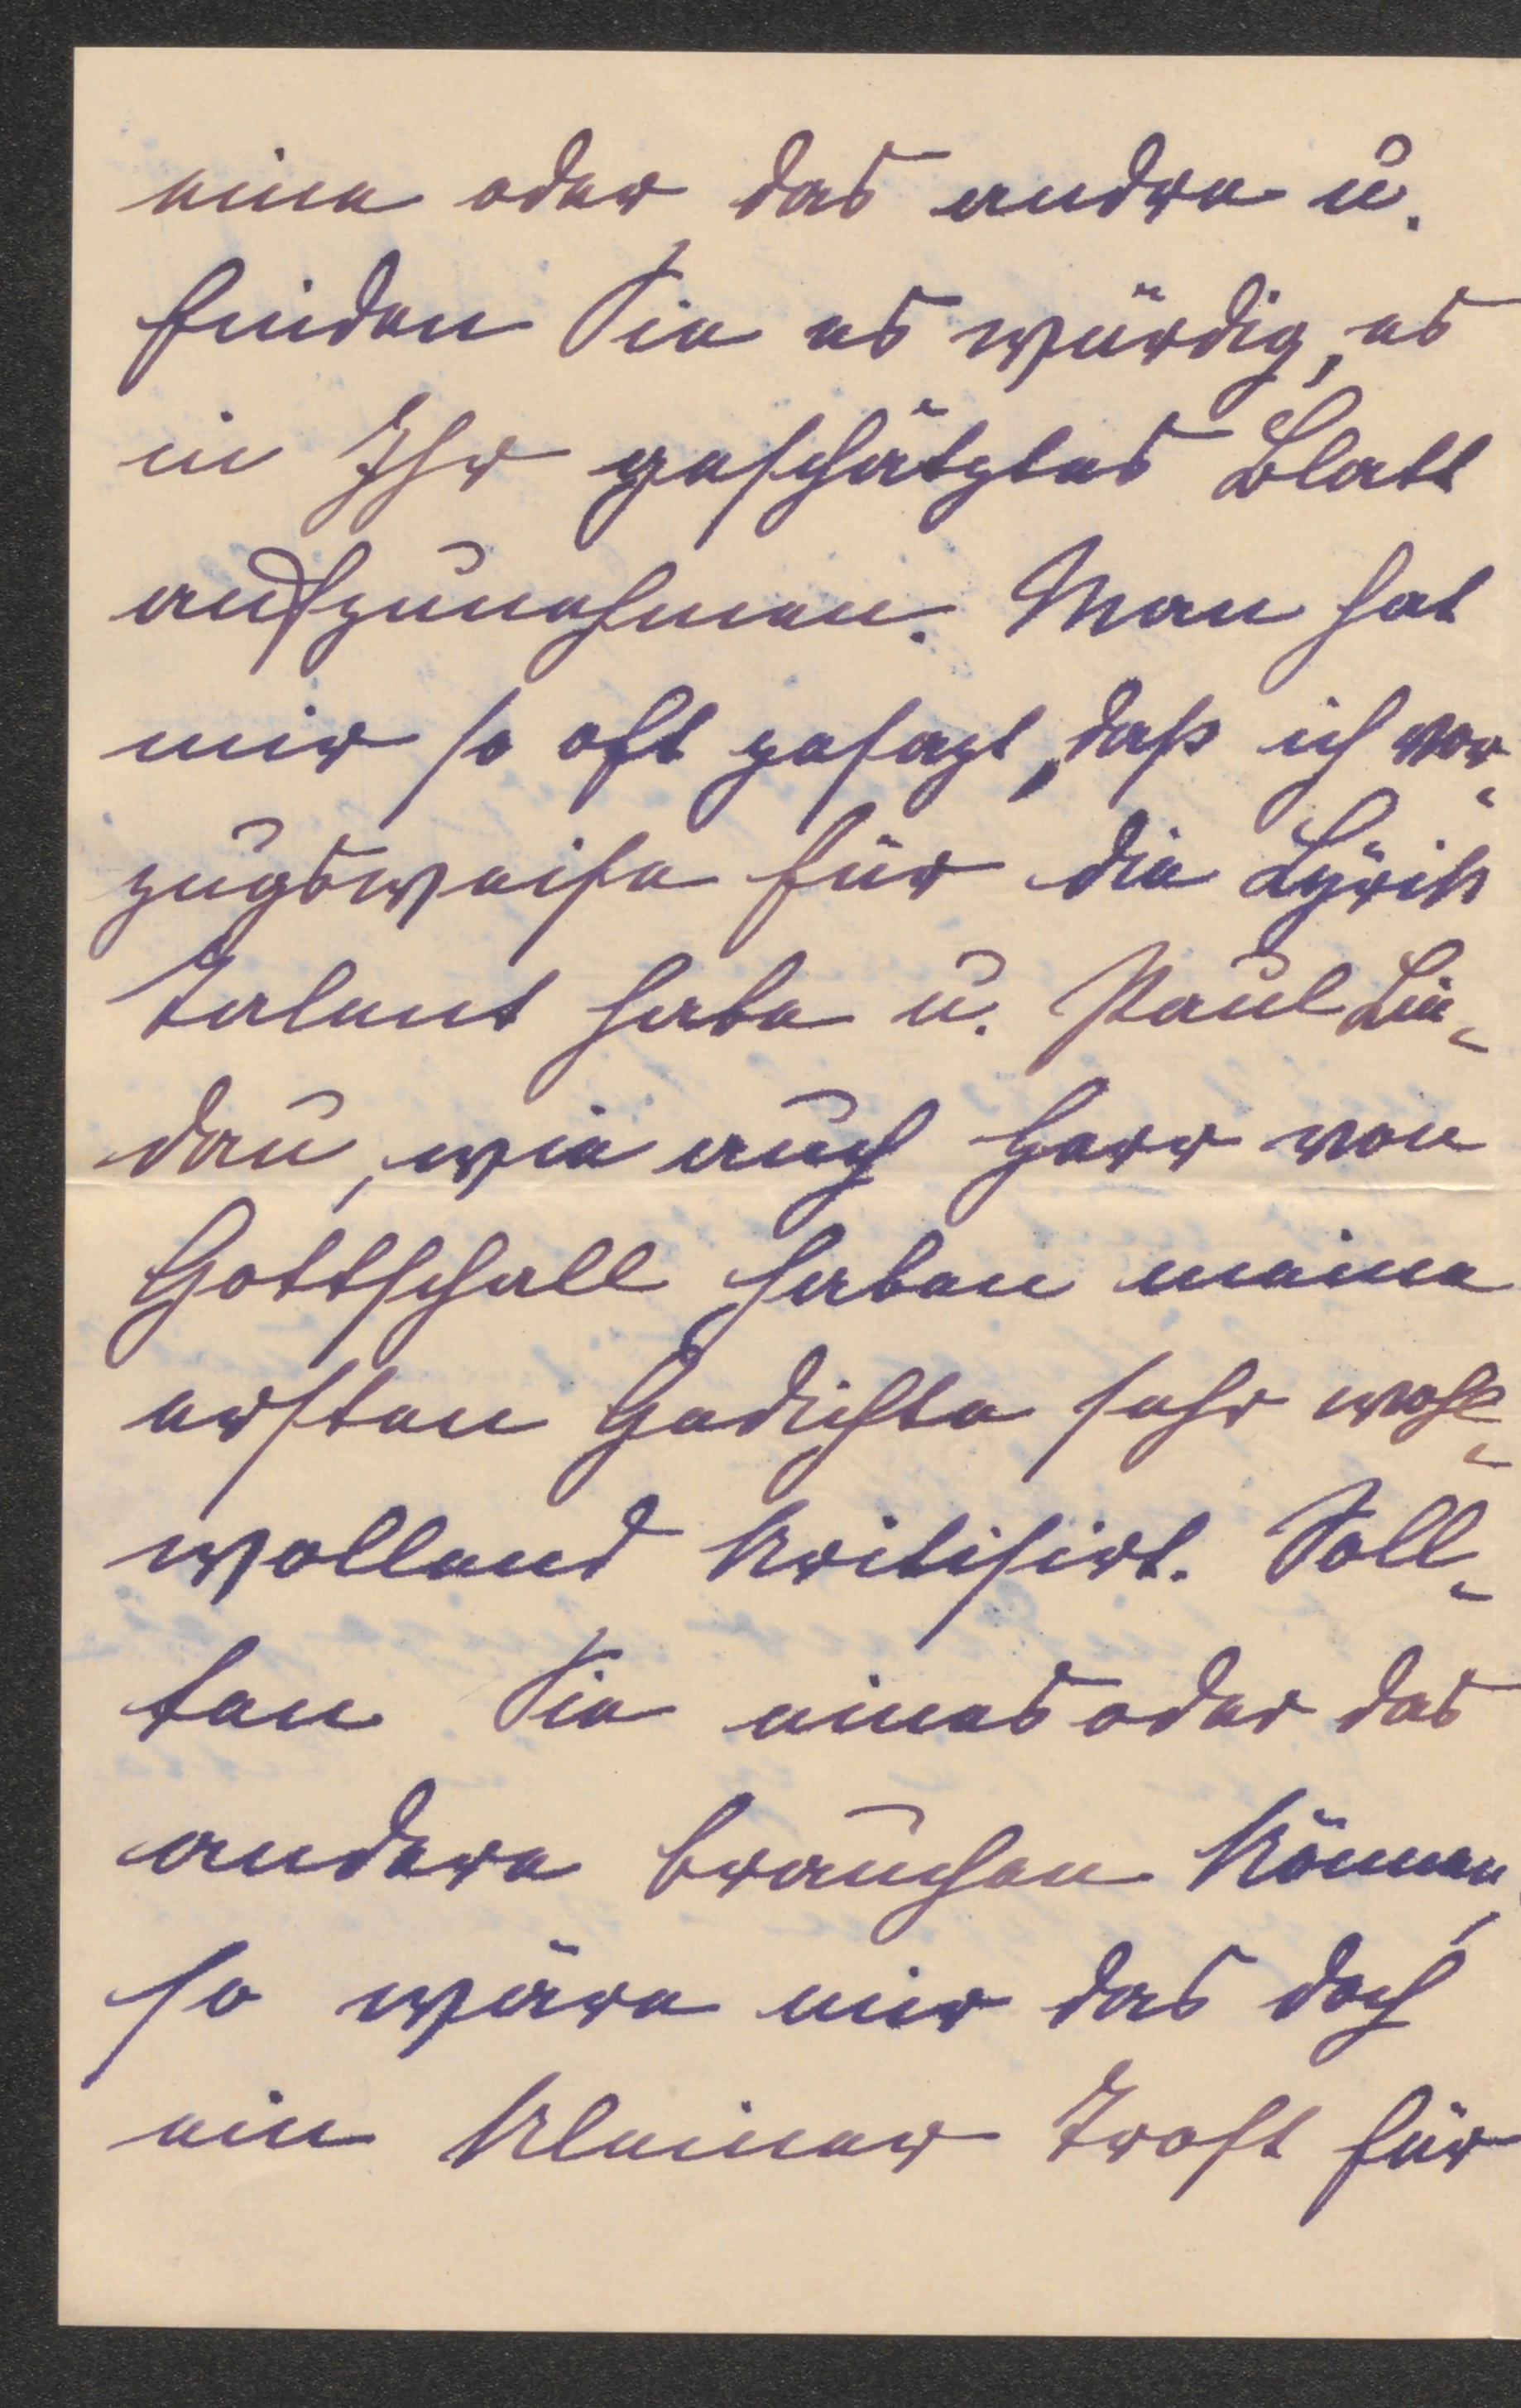 eine oder das andre u.
finden Sie es würdig, es
in Ihr geschätztes Blatt
aufzunehmen. Man hat
mir so oft gesagt, daß ich vor-
zugsweise für die Lyrik
Talent habe u. Paul Lin-
dau, wie auch Herr von
Gottschall haben meine
ersten Gedichte sehr wohl-
wollend kritisirt. Soll-
ten Sie eines oder das
andere brauchen können,
so wäre mir das doch
ein kleiner Trost für